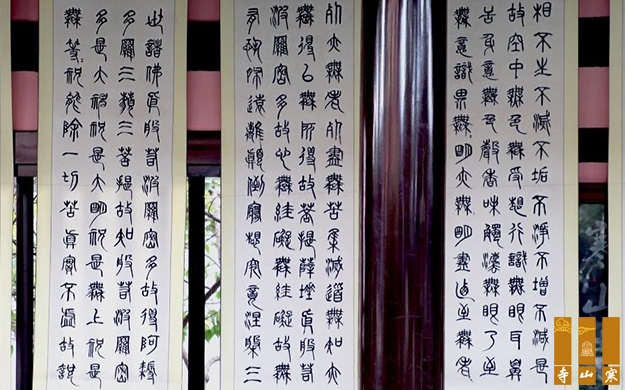 相不生不滅不垢不淨不增不減是
故空中無色無受想行識無眼耳鼻
舌身意無色聲香味觸法無眼乃至
無意識界無明亦無明盡乃至無老
死亦無老死盡無苦集滅道無知亦
無得以無所得故菩提薩埵依般若
波羅密多故心無罣礙無罣礙故無
有恐怖遠離顛倒夢想究竟涅槃三
世諸佛依般若波羅密多故得阿耨
多羅三藐三菩提故知般若波羅密
多是大神祝是大明祝是無上祝是
無等祝能除一切苦真實不虛故說
寒山寺